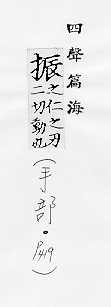 四聲篇海
振之仁之刃
二切動也
(手部。P419)